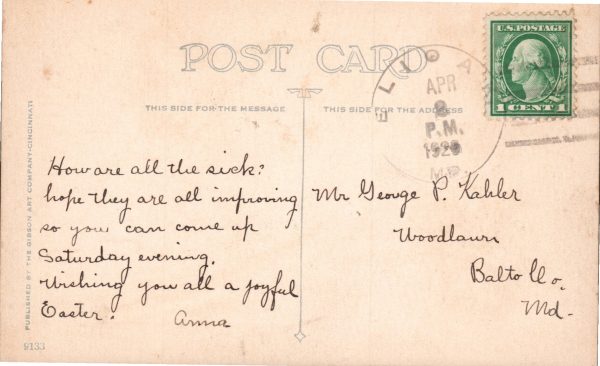 POST CARD
THIS SIDE FOR THE MESSAGE
THIS SIDE FOR THE ADDRESS
U.S. POSTAGE
1 CENT 1
APR
P.M.
1920
MD.
How are all the sick?
hope they are all improving
so you can come up
Saturday evening.
Wishing you all a joyful
Easter.
Anna
Mr George P. Kahler
Woodlawn
Balto Co.
Md.
PUBLISHED BY THE GIBSON ART COMPANY-CINCINNATI
9133